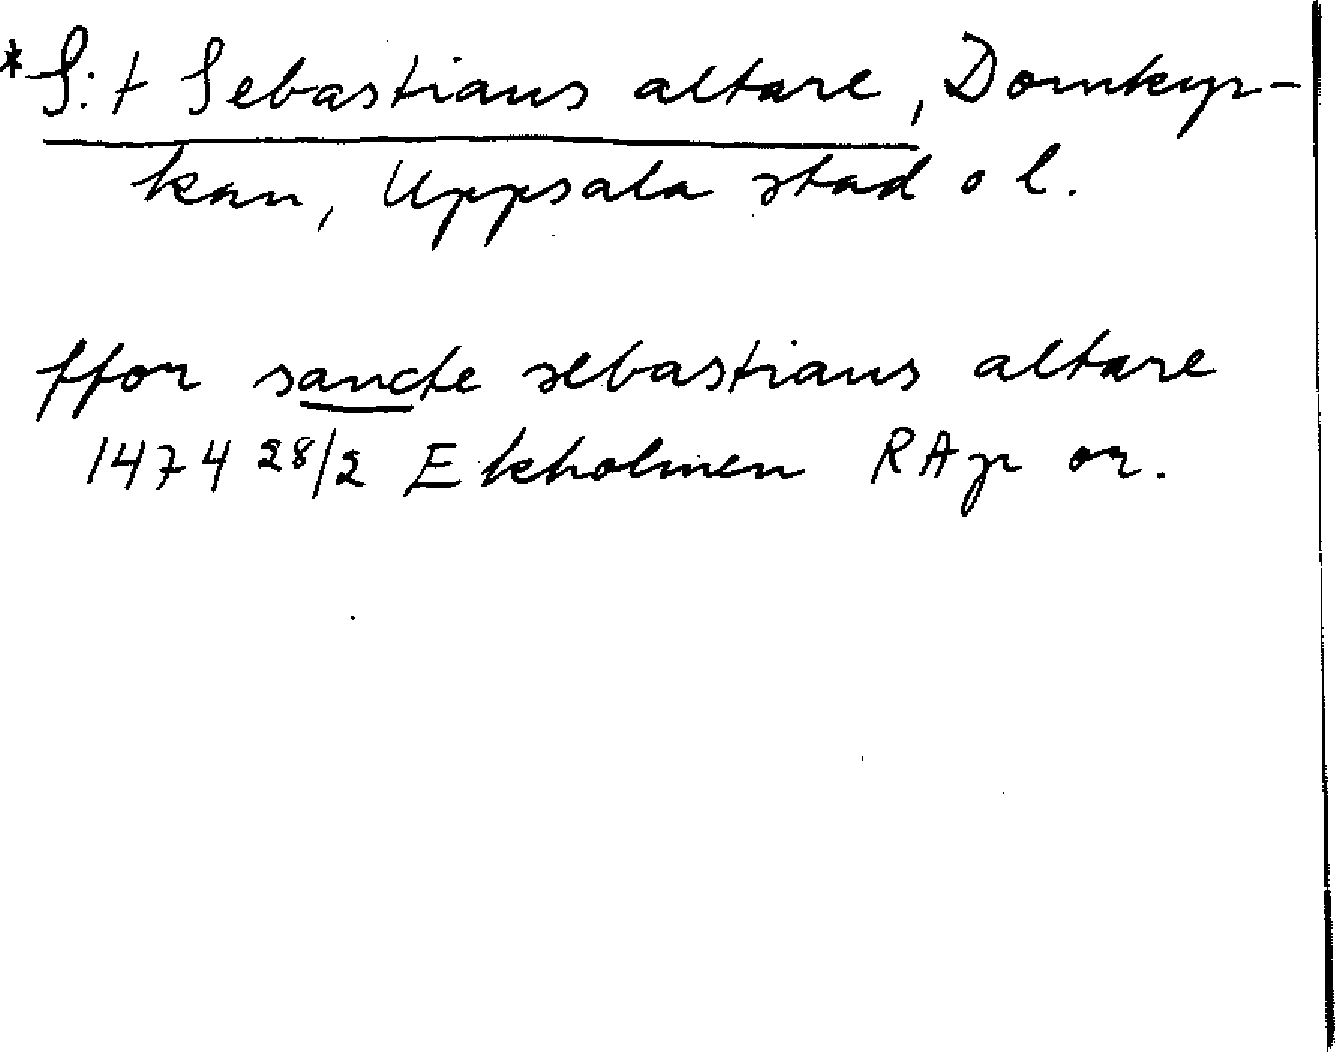 *S:t Sebastians altare, Domkyr-
kan, Uppsala stad o l.
ffor sancte sebastians altare
1474 28/2 Ekholmen RAp or.